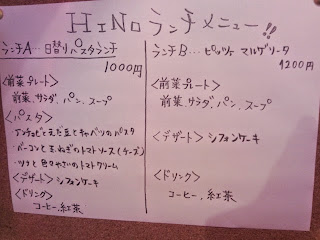 HINO ランチメニュー!!
ランチA…日替りパスタランチ
1000円
<前菜プレート>
前菜、サラダ、パン、スープ
<パスタ>
・アンチョビとえだ豆とキャベツのパスタ
・ベーコンと玉ねぎのトマトソース(チーズ)
・ツナと色々やさいのトマトクリーム
<デザート> シフォンケーキ
<ドリンク>
コーヒー、紅茶
ランチB…ピッツァ マルゲリータ
1200円
<前菜プレート>
前菜、サラダ、パン、スープ
<デザート> シフォンケーキ
<ドリンク>
コーヒー、紅茶